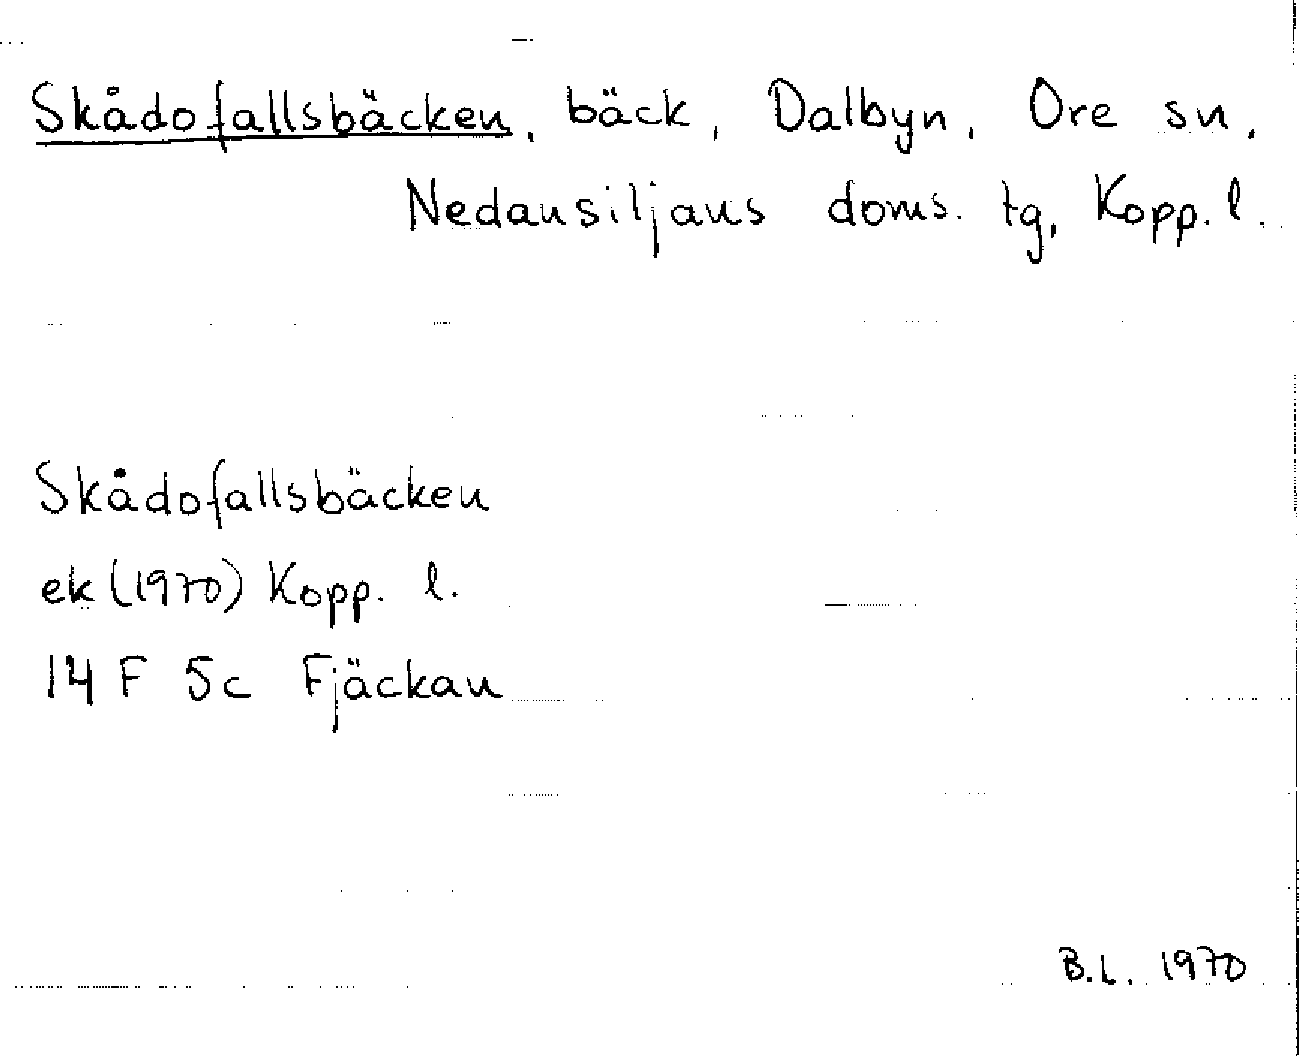 Skådofallsbäcken, bäck, Dalbyn, Ore sn,
Nedansiljans doms. tg, Kopp. l.
Skådofallsbäcken
ek (1970) Kopp. l.
14 F 5c Fjäckan
B.L. 1970